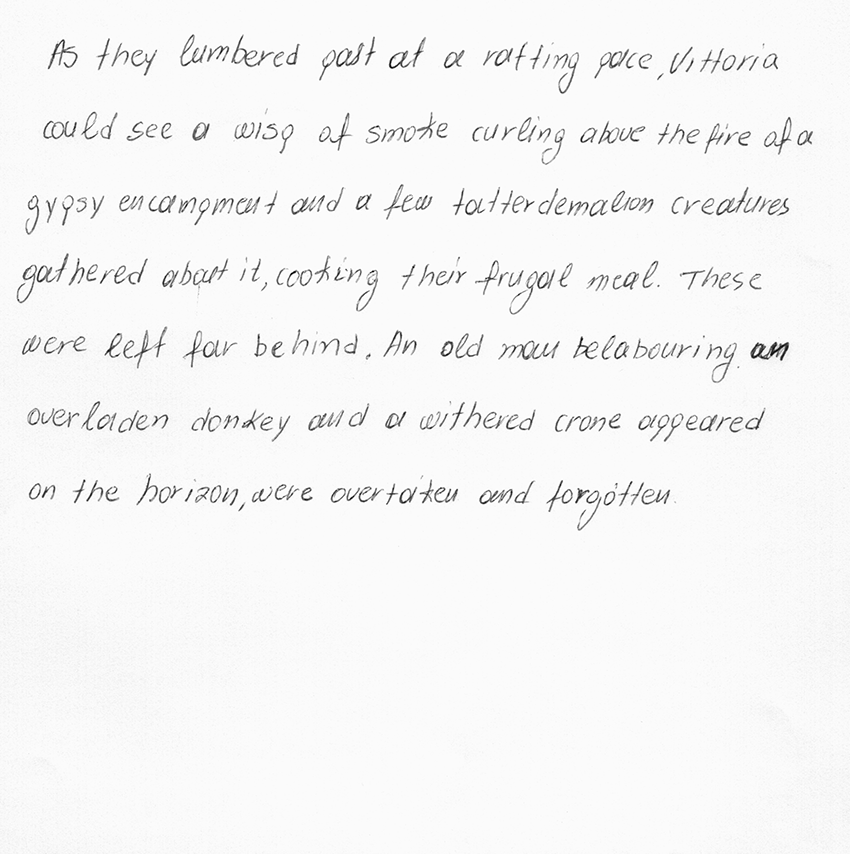 As they lumbered past at a ratting pace, Vittoria
could see a wisp of smoke curling above the fire of a
gypsy encampment and a few tatterdemalion creatures
gathered about it, cooking their frugal meal. These
were left far behind. An old man belabouring an
overladen donkey and a withered crone appeared
on the horizon, were overtaken and forgotten.